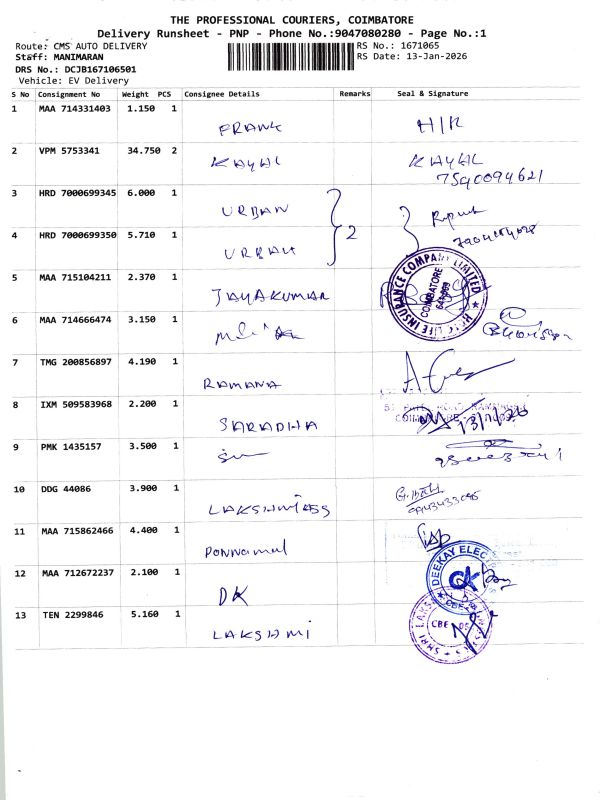 THE PROFESSIONAL COURIERS, COIMBATORE
Delivery Runsheet - PNP - Phone No.:9047080280 - Page No.:1
Route: CMS AUTO DELIVERY
RS No.: 1671065
Staff: MANIMARAN
RS Date: 13-Jan-2026
DRS No.: DCJB167106501
Vehicle: EV Delivery
S No Consignment No Weight PCS Consignee Details Remarks Seal & Signature
1 MAA 714331403 1.150 1 FRANK H/R
2 VPM 5753341 34.750 2 KAYAL KAYAL
7590094621
3 HRD 7000699345 6.000 1 URBAN
2
4 HRD 7000699350 5.710 1 URBAN
5 MAA 715104211 2.370 1 JAYAKUMAR
LIFE INSURANCE COMPANY LIMITED
COIMBATORE
6 MAA 714666474 3.150 1
7 TMG 200856897 4.190 1 RAMANA
8 IXM 509583968 2.200 1 SARADHA 13/1/26
9 PMK 1435157 3.500 1
10 DDG 44086 3.900 1
11 MAA 715862466 4.400 1 Ponnamal
12 MAA 712672237 2.100 1 DK
DEEKAY ELEC
DK
13 TEN 2299846 5.160 1 LAKSHMI
SHRI LAKS
CBE